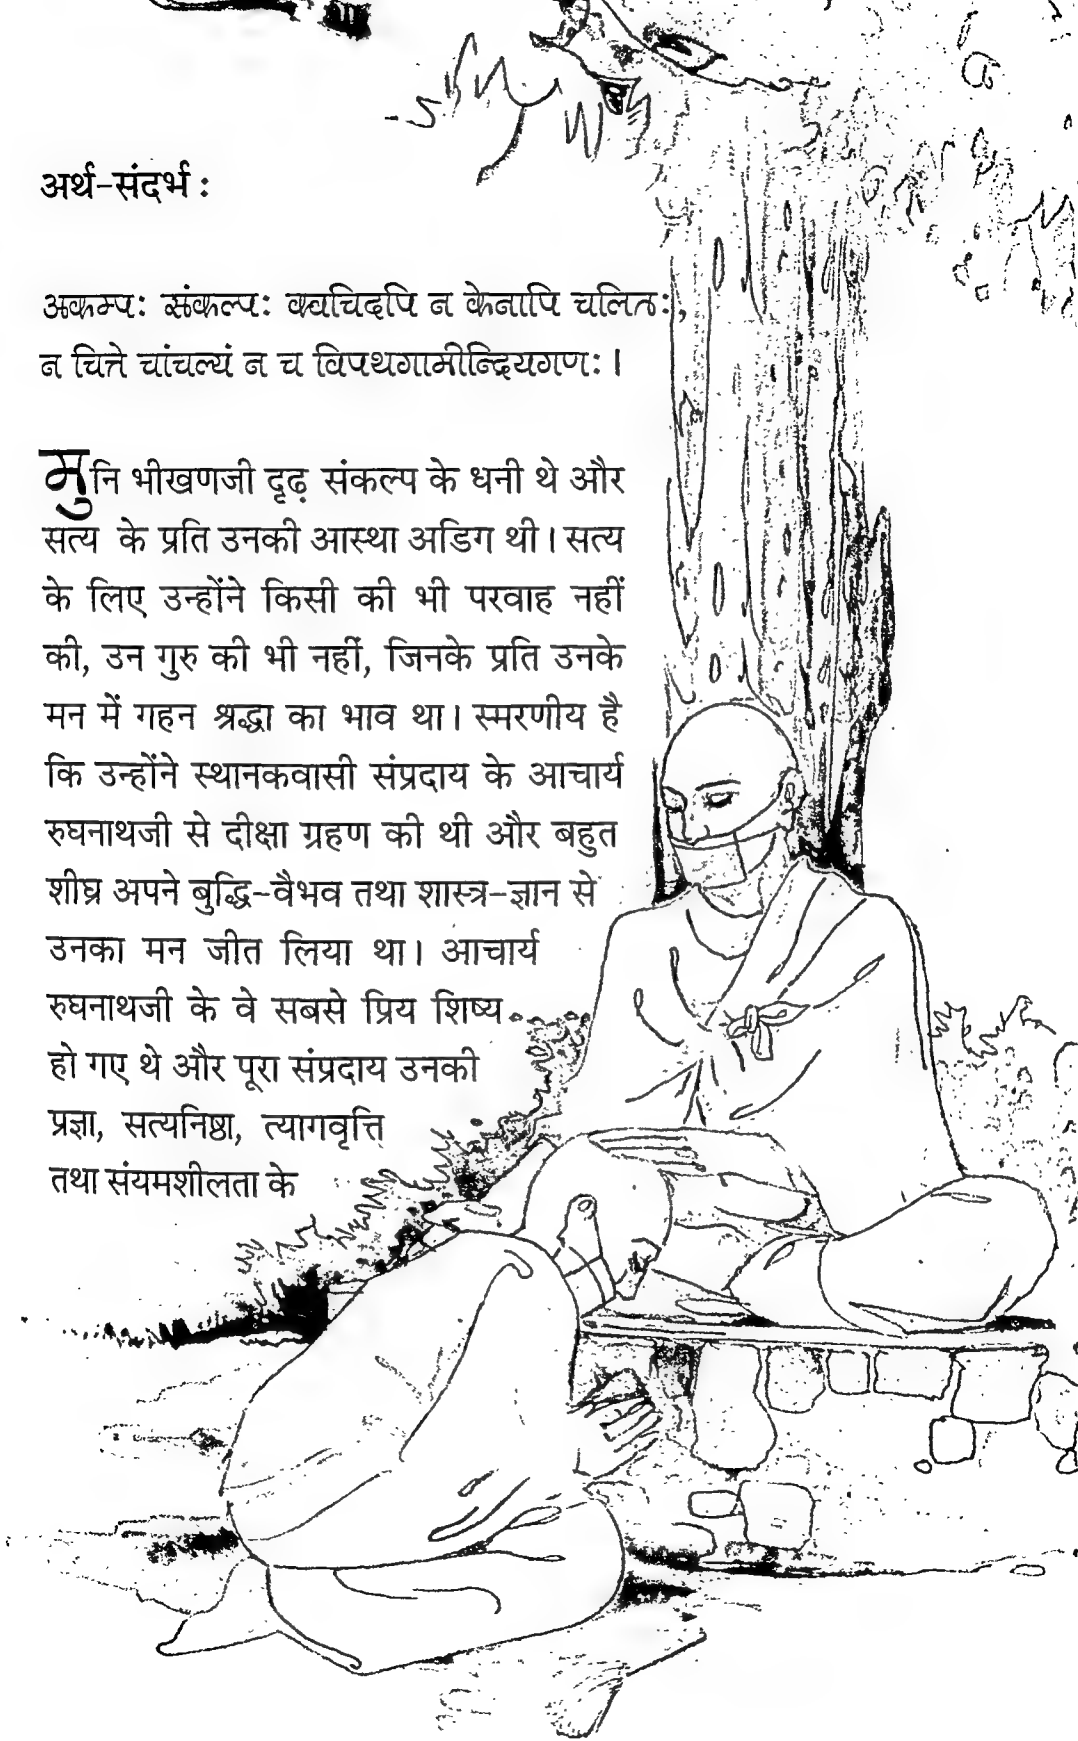 अर्थ-संदर्भ :
अकम्पः संकल्पः क्वचिदपि न केनापि चलितः,
न चित्ते चांचल्यं न च विपथगामीन्द्रियगणः ।
मुनि भीखणजी दृढ़ संकल्प के धनी थे और
सत्य के प्रति उनकी आस्था अडिग थी। सत्य
के लिए उन्होंने किसी की भी परवाह नहीं
की, उन गुरु की भी नहीं, जिनके प्रति उनके
मन में गहन श्रद्धा का भाव था। स्मरणीय है
कि उन्होंने स्थानकवासी संप्रदाय के आचार्य
रुघनाथजी से दीक्षा ग्रहण की थी और बहुत
शीघ्र अपने बुद्धि-वैभव तथा शास्त्र-ज्ञान से
उनका मन जीत लिया था। आचार्य
रुघनाथजी के वे सबसे प्रिय शिष्य
हो गए थे और पूरा संप्रदाय उनकी
प्रज्ञा, सत्यनिष्ठा, त्यागवृत्ति
तथा संयमशीलता के